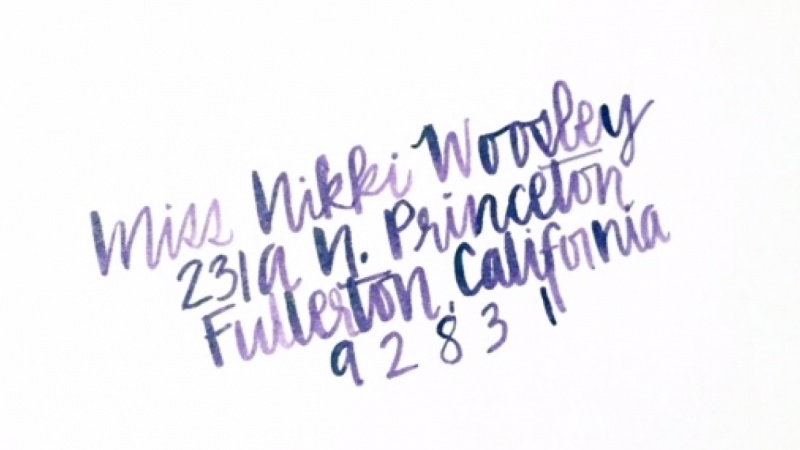 Miss Nikki Woosley
231a N. Princeton
Fullerton, California
92831